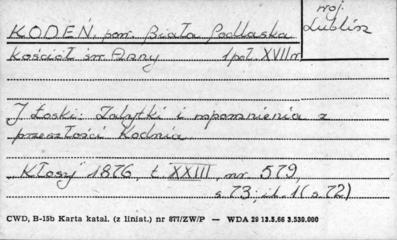 woj.
Lublin
KODEŃ, pow. Biała Podlaska
Kościół św. Anny 1 poł. XVII w.
J. Łoski: Zabytki i wspomnienia z
przeszłości Kodnia
"Kłosy" 1876, t. XXIII, nr. 579,
s. 73; il. 1 (s. 72)
CWD, B-15b Karta katal. (z liniat.) nr 877/ZW/P — WDA 29 13.5.66 3.530.000